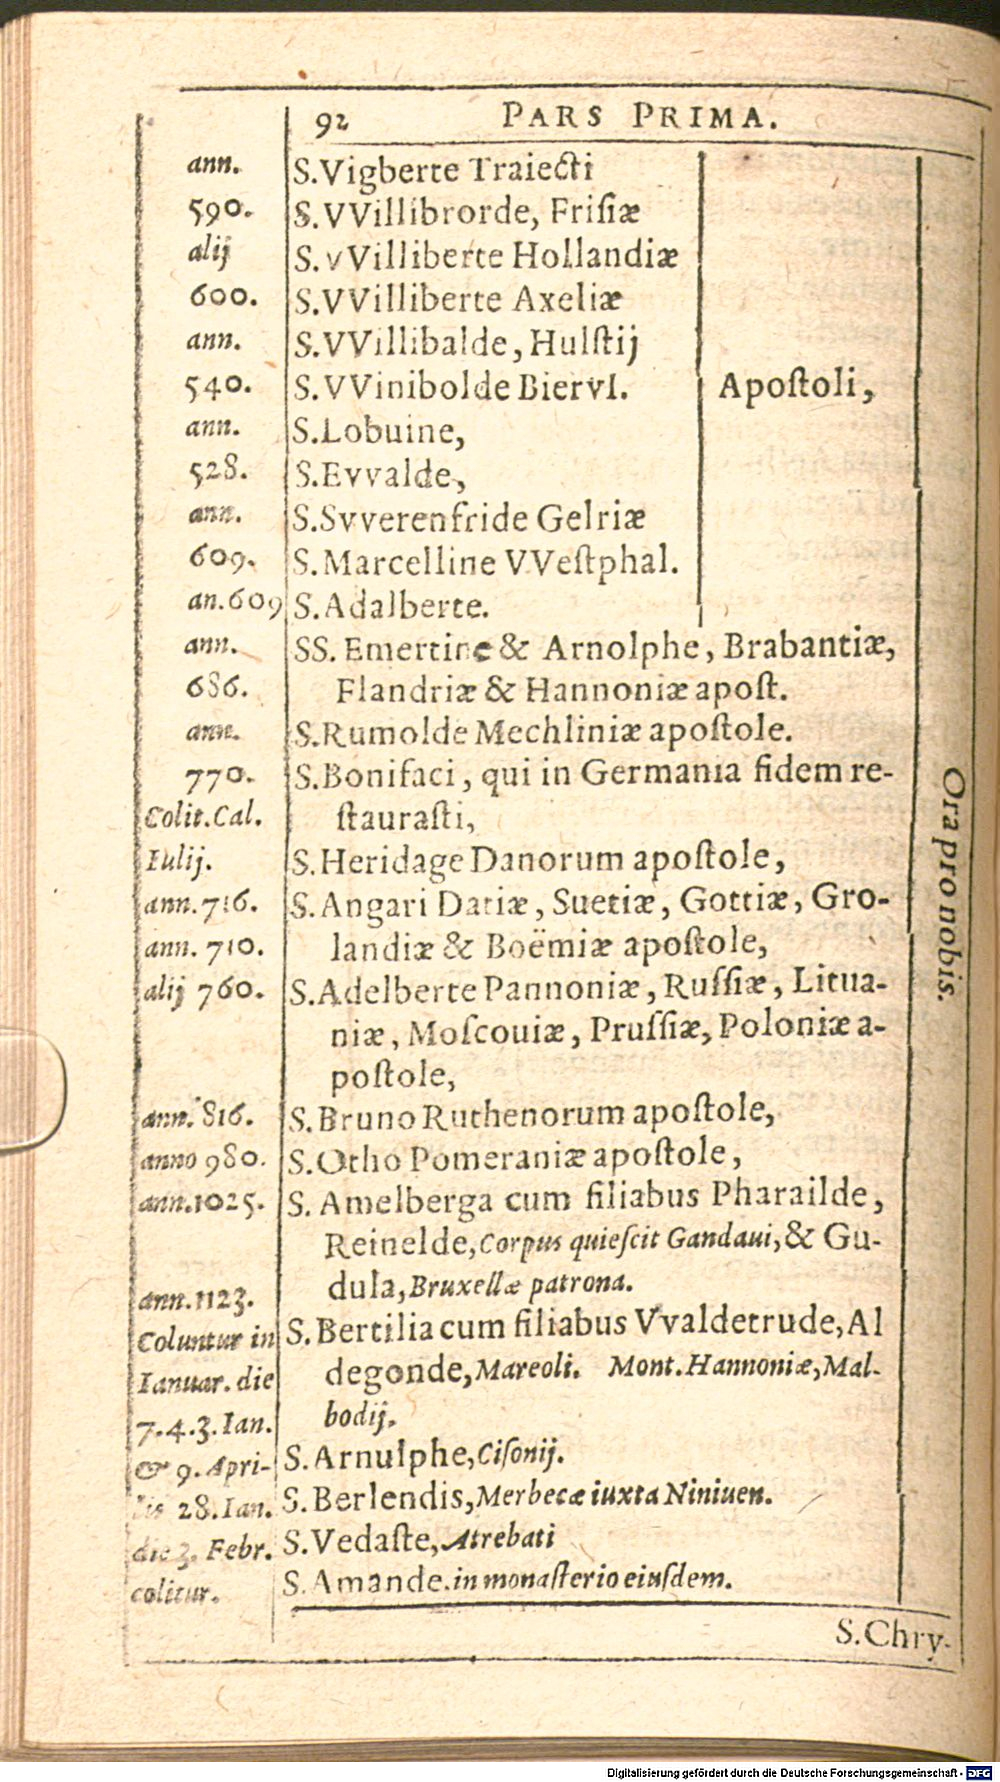 92 PARS PRIMA.
ann.
590.
alij
600.
ann.
540.
ann.
528.
ann.
609.
an.609
ann.
686.
ann.
770.
Colit.Cal.
Iulij.
ann.716.
ann. 710.
alij 760.
ann. 816.
anno 980.
ann.1025.
ann.1123.
Coluntur in
Ianuar. die
7.4.3.Ian.
& 9. Apri-
lis 28.Ian.
die 3. Febr.
colitur.
S.Vigberte Traiecti
S.VVillibrorde, Frisiæ
S.vVilliberte Hollandiæ
S.VVilliberte Axeliæ
S.VVillibalde, Hulstij
S.VVinibolde Biervl.
S.Lobuine,
S.Evvalde,
S.Svverenfride Gelriæ
S.Marcelline VVestphal.
S.Adalberte.
Apostoli,
SS. Emertine & Arnolphe, Brabantiæ,
Flandriæ & Hannoniæ apost.
S.Rumolde Mechliniæ apostole.
S.Bonifaci, qui in Germania fidem re-
staurasti,
S.Heridage Danorum apostole,
S.Angari Datiæ, Suetiæ, Gottiæ, Gro-
landiæ & Boëmiæ apostole,
S.Adelberte Pannoniæ, Russiæ, Litua-
niæ, Moscouiæ, Prussiæ, Poloniæ a-
postole,
S.Bruno Ruthenorum apostole,
S.Otho Pomeraniæ apostole,
S. Amelberga cum filiabus Pharailde,
Reinelde, Corpus quiescit Gandaui, & Gu-
dula, Bruxellæ patrona.
S.Bertilia cum filiabus Vvaldetrude, Al
degonde, Mareoli. Mont.Hannoniæ, Mal-
bodij.
S.Arnulphe, Cisonij.
S.Berlendis, Merbecæ iuxta Niniuen.
S.Vedaste, Atrebati
S.Amande. in monasterio eiusdem.
Ora pro nobis.
S.Chry-
Digitalisierung gefördert durch die Deutsche Forschungsgemeinschaft - DFG